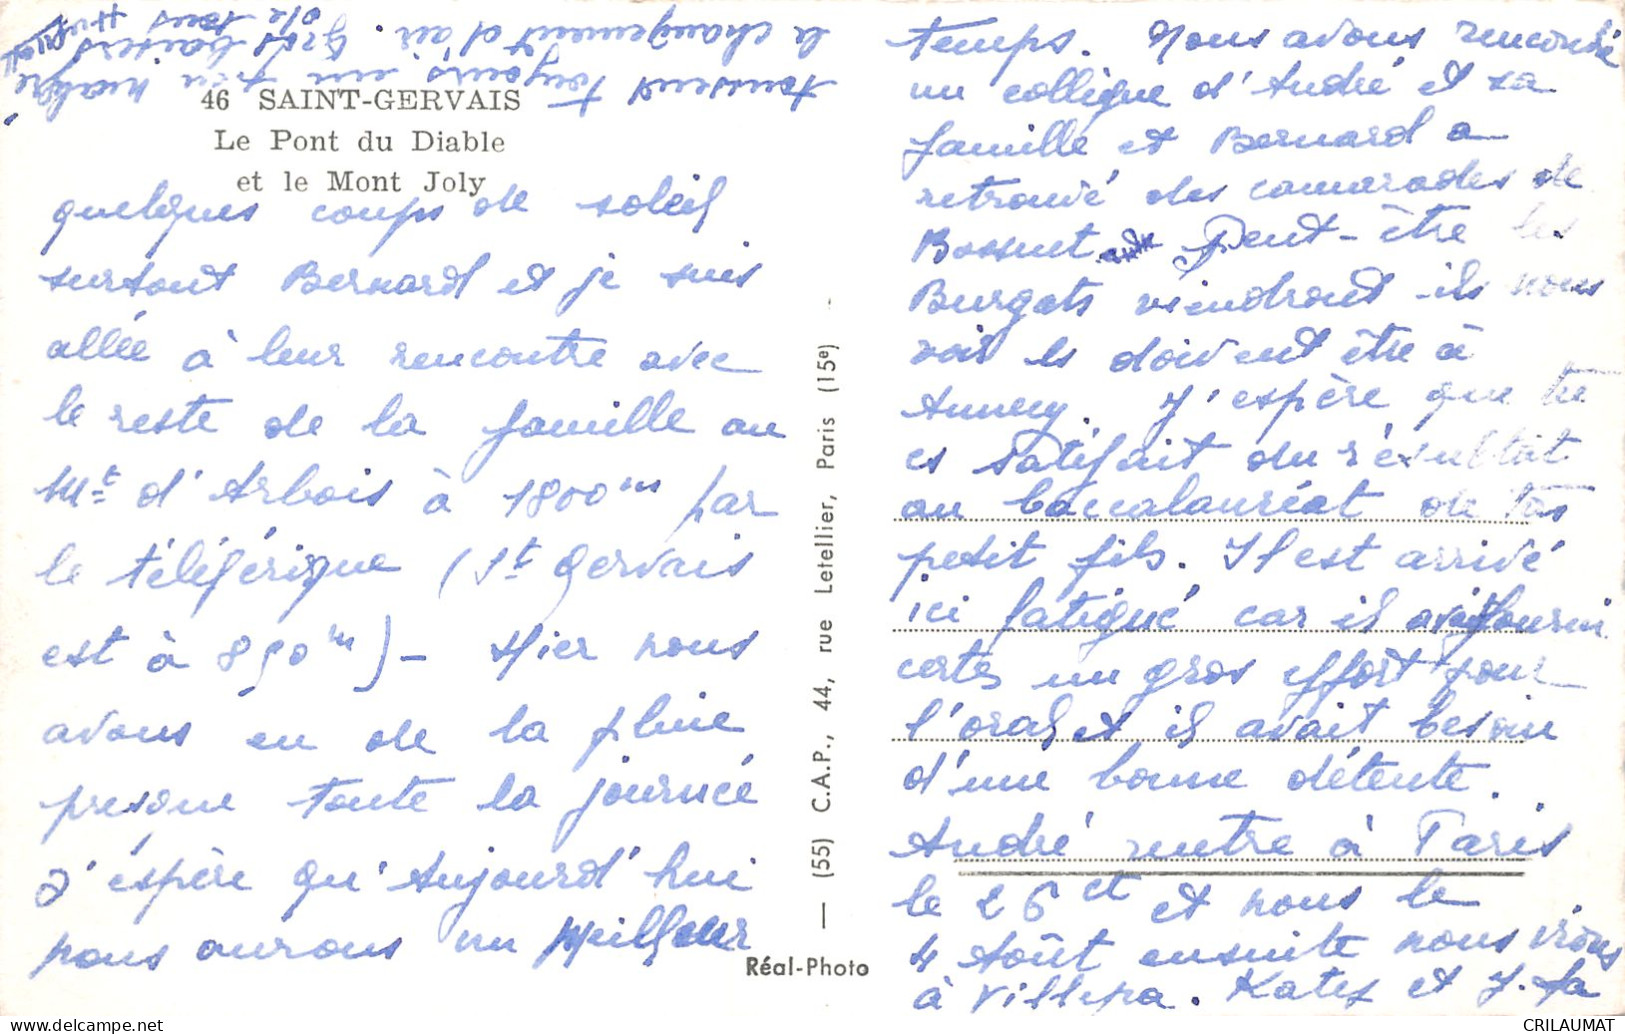 46 SAINT-GERVAIS
Le Pont du Diable
et le Mont Joly
quelques coups de soleil
surtout Bernard et je suis
allée à leur rencontre avec
le reste de la famille au
Mt d'Arbois à 1800 m par
le téléférique (St Gervais
est à 850 m) - Hier nous
avons eu de la pluie
presque toute la journée
J'espère qu'Aujourd'hui
nous aurons un Meilleur
temps. Nous avons rencontré
un collègue d'André et sa
famille et Bernard a
retrouvé des camarades de
Bossuet. Peut-être les
Burgats viendront-ils nous
voir ils doivent être à
Annecy. J'espère que tu
es satisfait du résultat
au baccalauréat de tes
petit fils. Il est arrivé
ici fatigué car il avait fourni
certes un gros effort pour
l'oral et il avait besoin
d'une bonne détente.
André rentre à Paris
le 26 ct et nous le
4 Août ensuite nous irons
à Villepa. Katy et J. Fa
toussent toujours un peu malgré
le changement d'air. Gros baisers
de tous
(55) C.A.P., 44, rue Letellier, Paris (15e)
Réal-Photo
CRILAUMAT